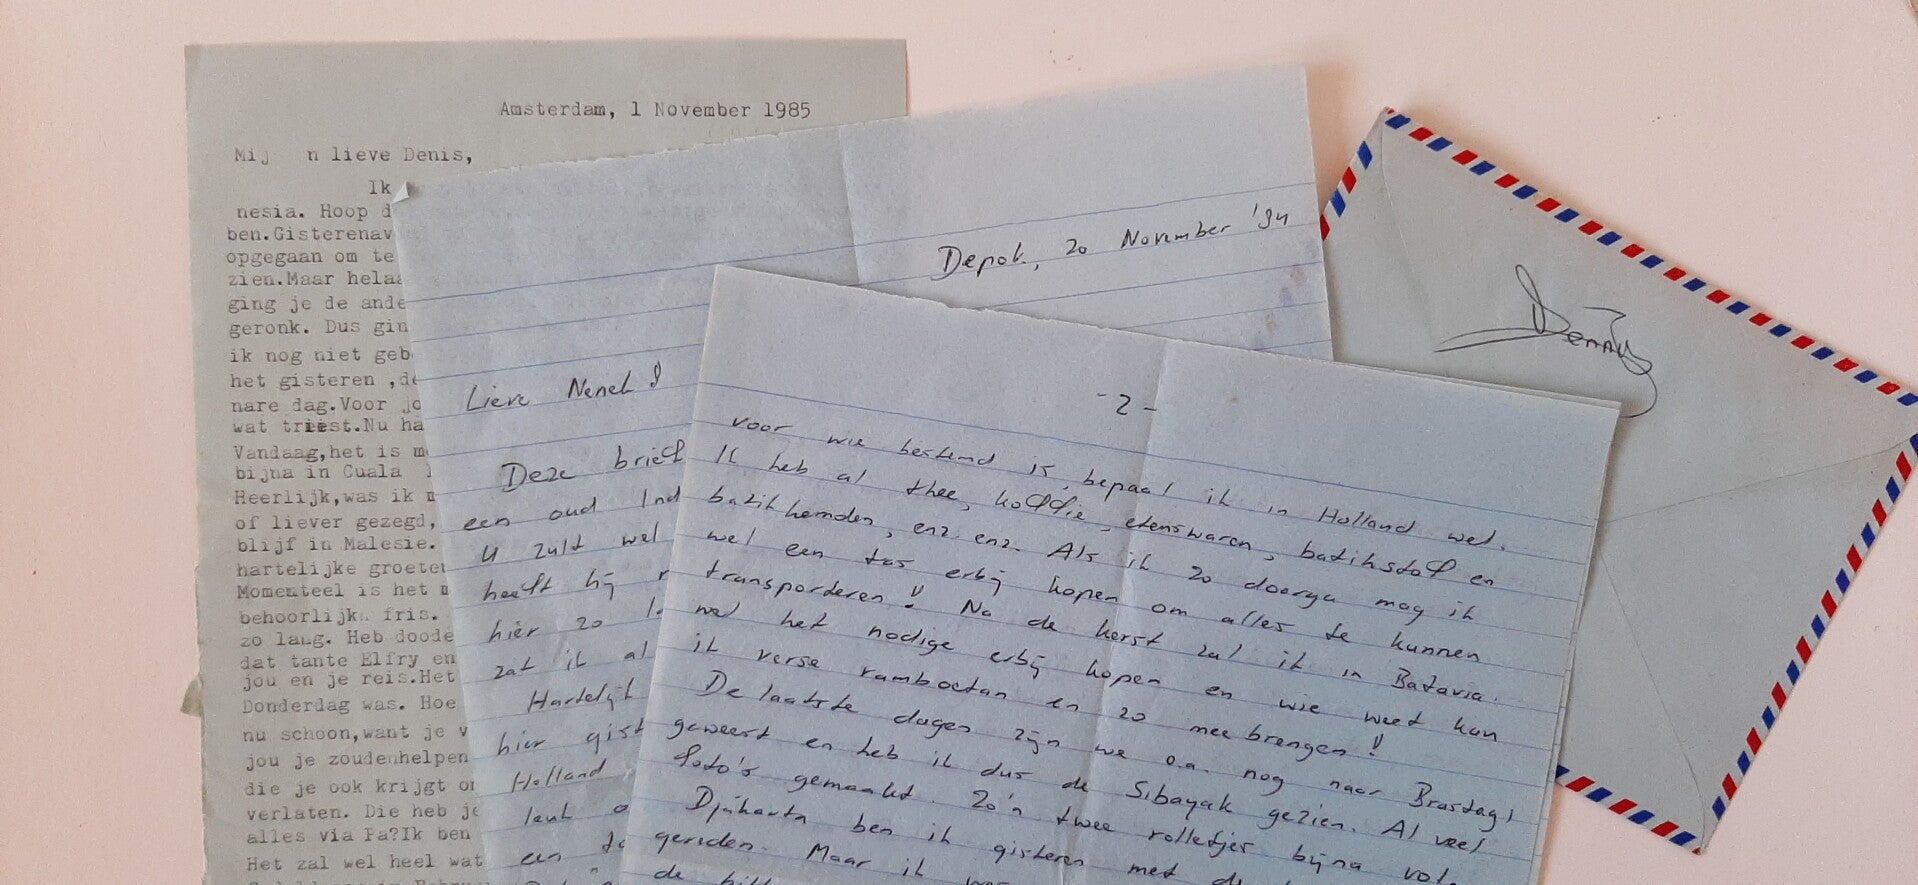 Amsterdam, 1 November 1985
Mij n lieve Denis,
Ik
nesia. Hoop d
ben.Gisterenav
opgegaan om te
zien.Maar helaa
ging je de ande
geronk. Dus gin
ik nog niet geb
het gisteren ,de
nare dag.Voor jo
wat triest.Nu ha
Vandaag,het is m
bijna in Cuala
Heerlijk,was ik
of liever gezegd,
blijf in Malesie.
hartelijke groeten
Momenteel is het
behoorlijk fris.
zo lang. Heb doode
dat tante Elfry en
jou en je reis.Het
Donderdag was. Hoe
nu schoon,want je v
jou je zoudenhelpen
die je ook krijgt
verlaten. Die heb je
alles via Pa?Ik ben
Het zal wel heel wat
Depok, 20 November
Lieve Nenek!
Deze brief
een oud Ind
U zult wel
heeft hij
hier zo
zat ik al
Hartelijk
hier gist
Holland
leuk
een
-2-
voor wie bestemd is, bepaal ik in Holland wel.
Ik heb al thee, koffie, etenswaren, batikstof en
batikhemden, enz. enz. Als ik zo doorga mag ik
wel een tas erbij kopen om alles te kunnen
transporteren! Na de kerst zal ik in Batavia
wel het nodige erbij kopen en wie weet kan
ik verse ramboetan en zo mee brengen!
De laatste dagen zijn we o.a. nog naar Brastagi
geweest en heb ik dus de Sibayak gezien. Al veel
foto's gemaakt. Zo'n twee rolletjes bijna vol.
Djakarta ben ik gisteren met de
gereden. Maar ik
de
Denny